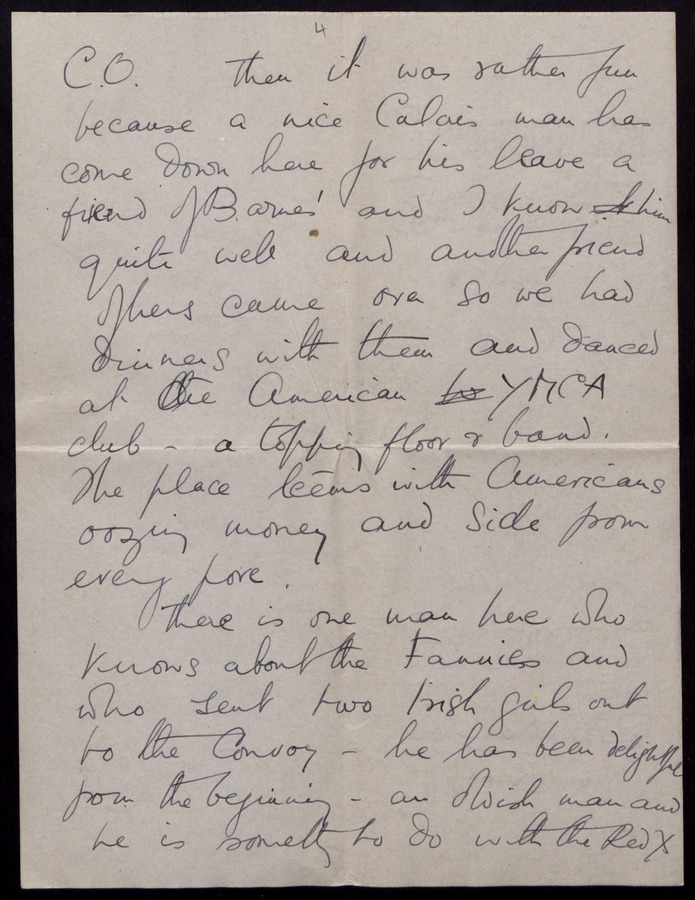 4
C.O. Then it was rather fun
because a nice Calais man has
come down here for his leave a
friend of Barnes' and I know him
quite well and another friend
of hers came over so we had
dinners with them and danced
at the American YMCA
club - a topping floor & band.
The place teems with Americans
oozing money and side from
every pore.
There is one man here who
knows about the Fannies and
who sent two Irish girls out
to the Convoy - he has been delightful
from the beginning - an Irish man and
he is something to do with the Red X